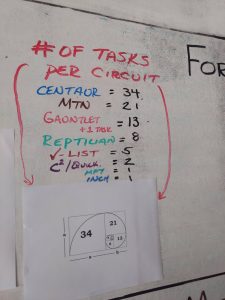 # OF TASKS
PER CIRCUIT
CENTAUR = 34
MTN = 21
GAUNTLET = 13
+1 TASK
REPTILIAN = 8
✓-LIST = 5
C²/QUICK. = 2
MFT = 1
INCH = 1
FOR
34
21
13